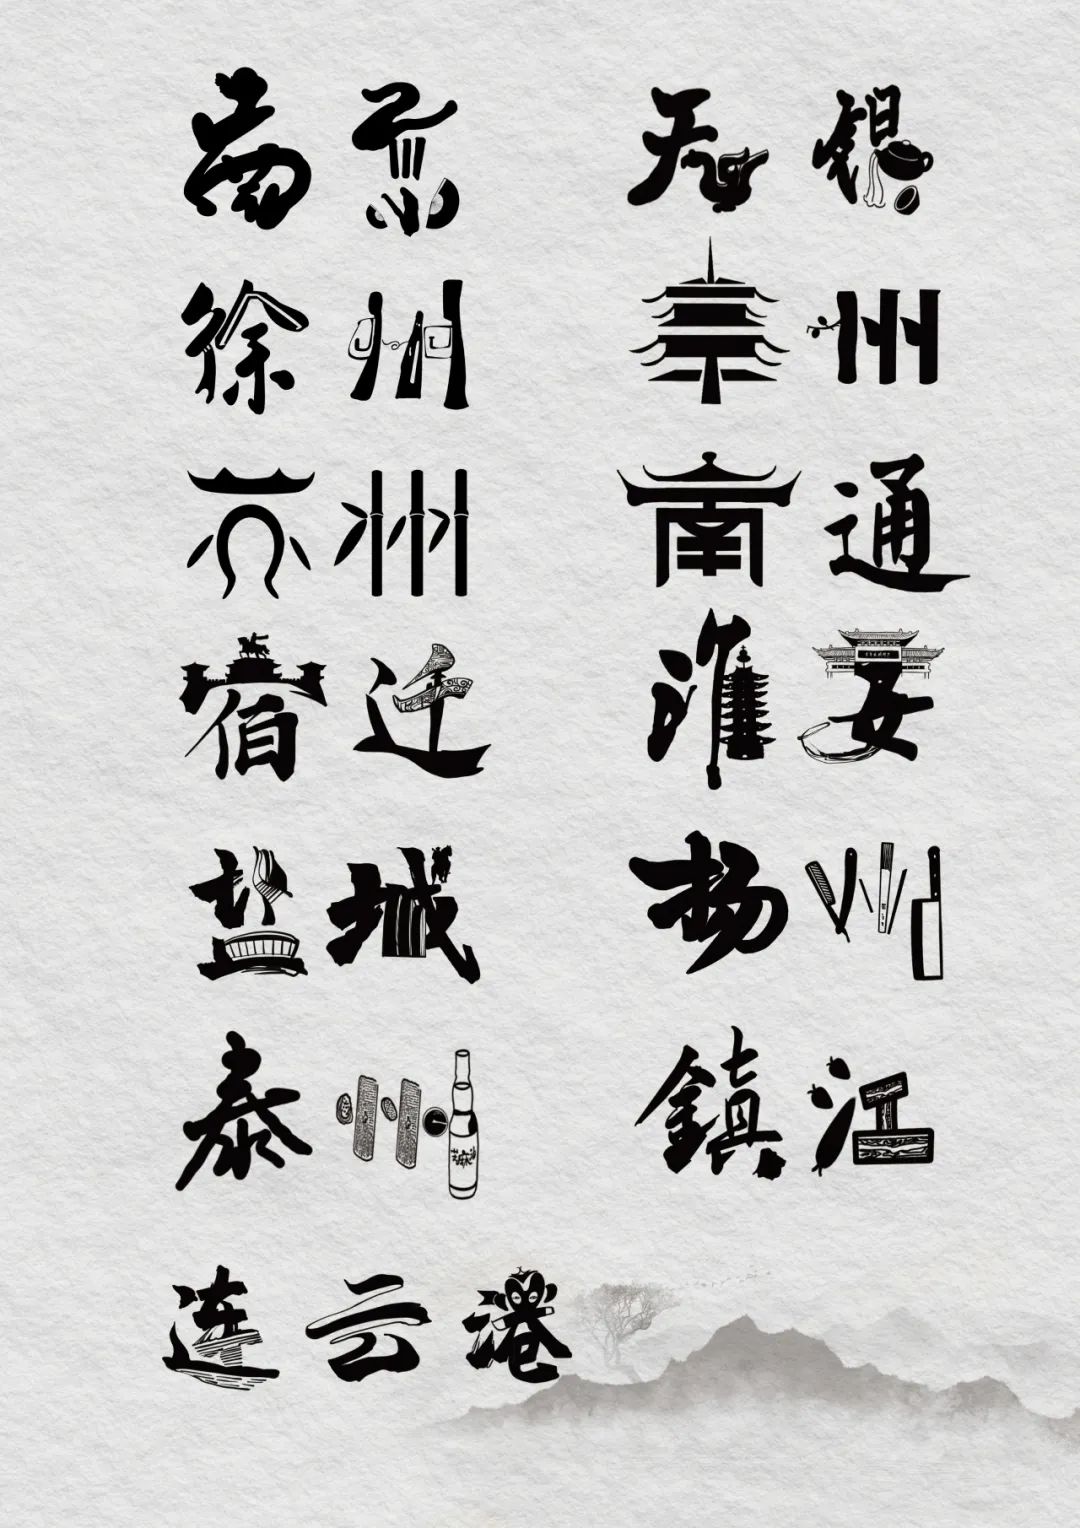 南京 无锡
徐州 常州
苏州 南通
宿迁 淮安
盐城 扬州
泰州 鎮江
连云港